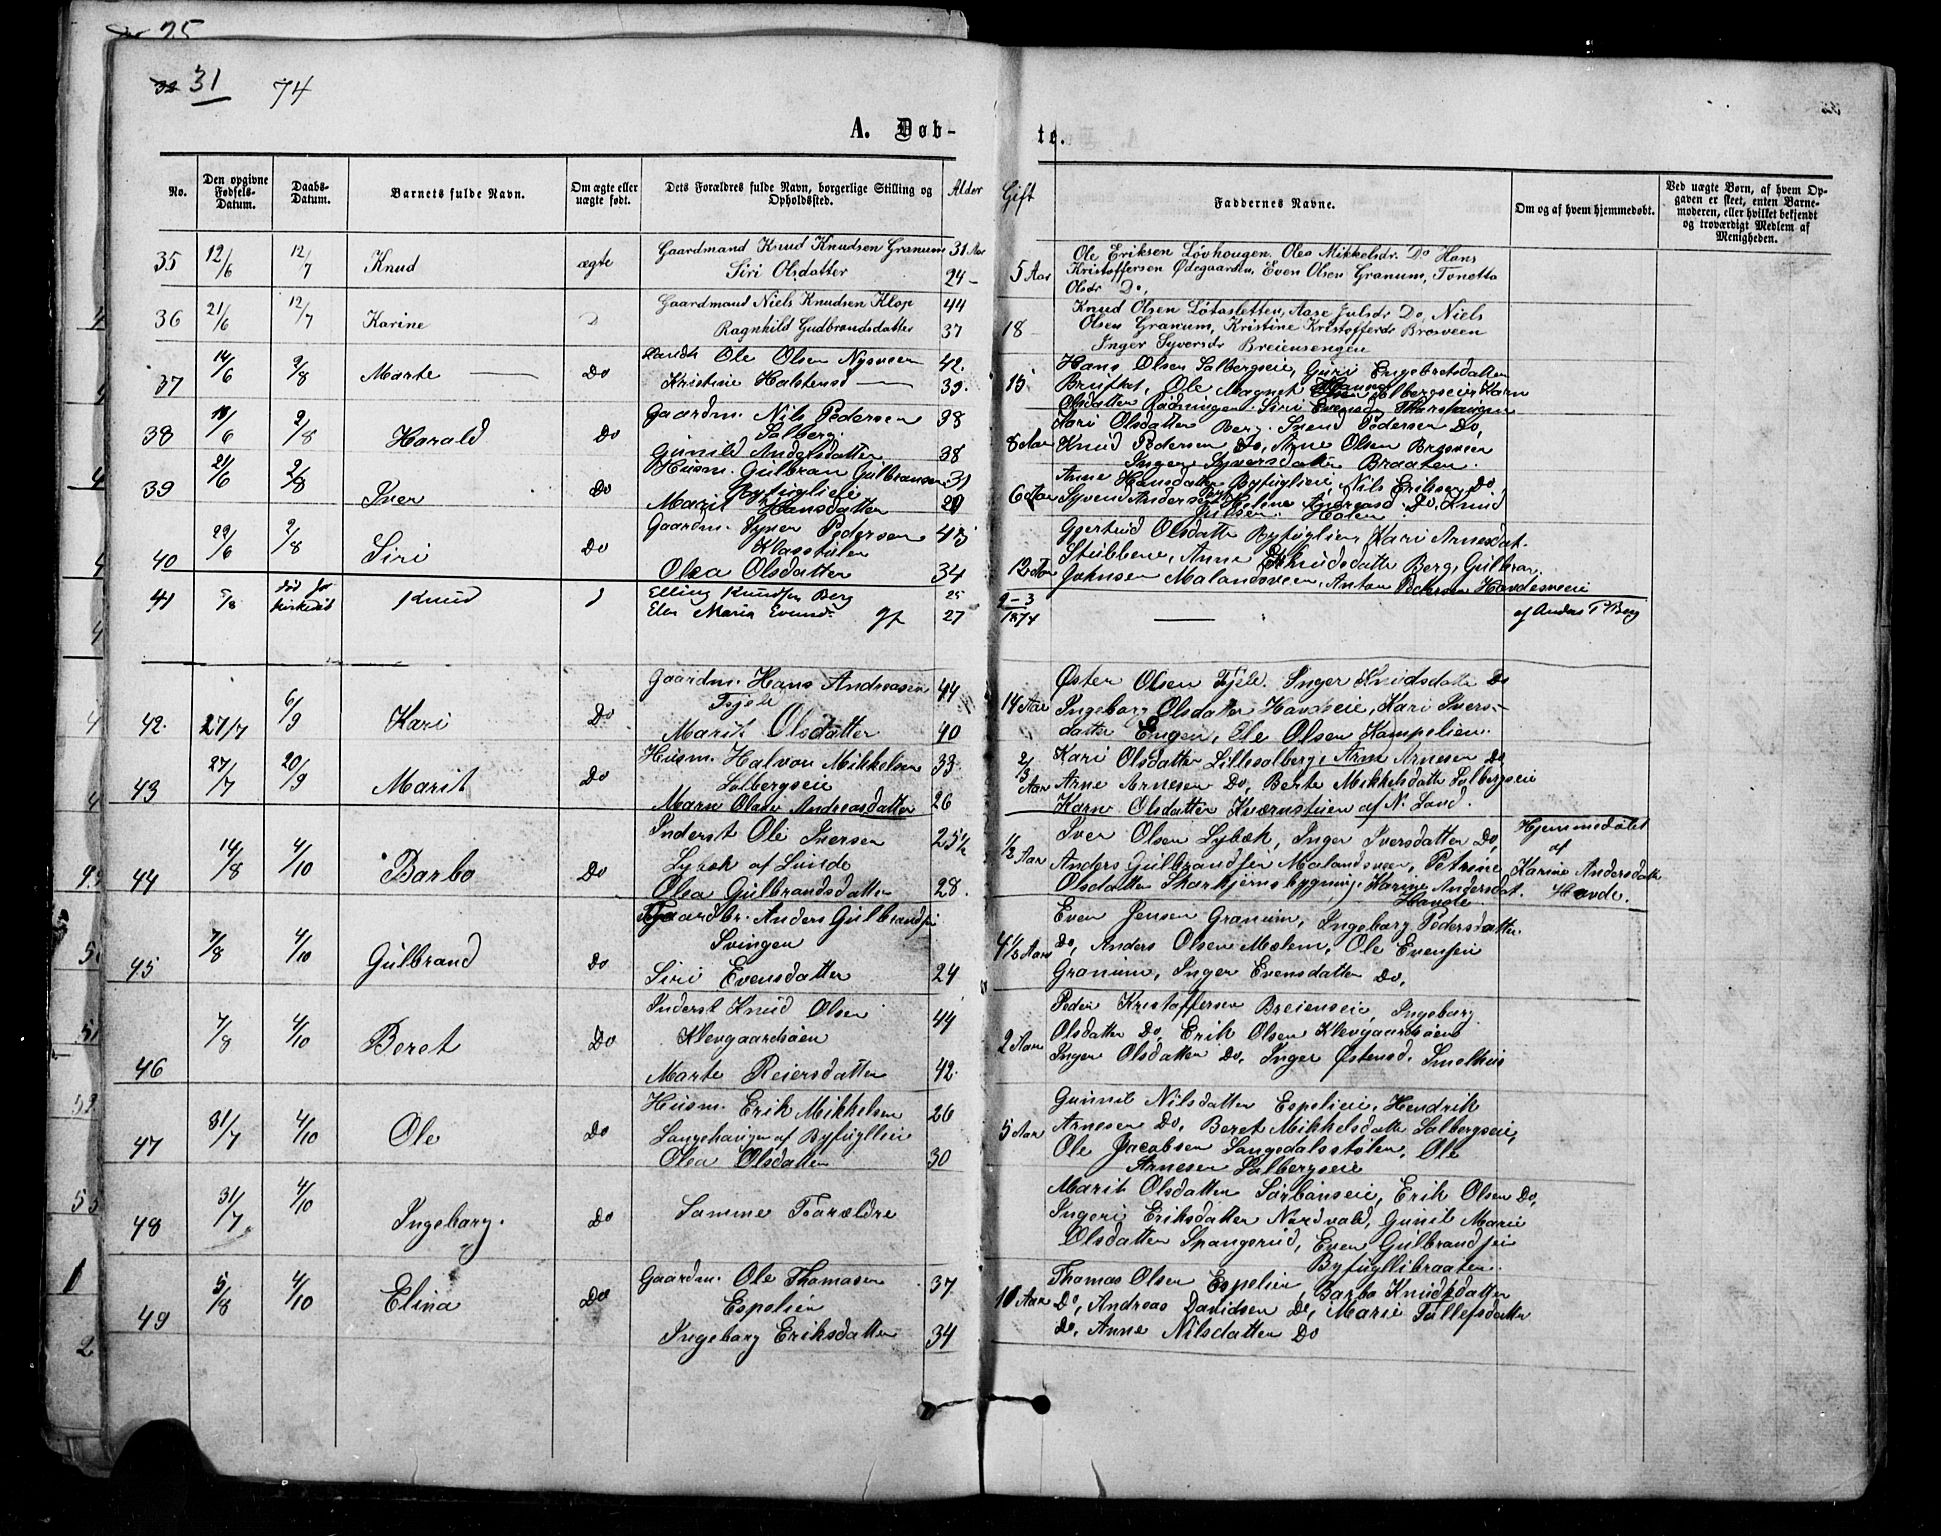 31 74
A. Døb-
te.
No.
Den opgivne Fødsels-Datum.
Daabs-Datum.
Barnets fulde Navn.
Om ægte eller uægte født.
Dets Forældres fulde Navn, borgerlige Stilling og Opholdssted.
Alder
Gift
Faddernes Navne.
Om og af hvem hjemmedøbt.
Ved uægte Børn, af hvem Opgaven er skeet, enten Barnemoderen, eller hvilket bekjendt og troværdigt Medlem af Menigheden.
35 12/6 12/7 Knud ægte Gaardmand Knud Knudsen Granum 31 Aar
Siri Olsdatter 24
5 Aar Ole Eriksen Løvhougen, Olea Mikkelsdr. Do Hans
Kristoffersen Ødegaarden, Even Olsen Granum, Tonetta
Olsdr Do,
36 21/6 12/7 Karine D Gaardmand Niels Knudsen Klop 44
Ragnhild Gudbrandsdatter 37
18 Knud Olsen Løtasletten, Aase Julsdr Do, Niels
Olsen Granum, Kristine Kristoffersdr Brosveen
Inger Syversdr Breiensengen
37 14/6 2/8 Marte Do Ole Olsen Nysveen 42
Kristine Halstensd 39
15 Hans Olsen Salbergseie, Guri Engebretsdatter
Ole Magnet Salbergseie Karn
Olsdatter Rødningen. Siri
38 2/8 Harald Do Gaardm. Nils Pedersen 38
Salberg.
Gunild Andersdatter 38
8 Aar Kari Olsdatter Berg. Svend Pedersen Do,
Knud Pedersen Do, Arne Olsen Brosveen
Inger Syversdatter Braaten.
39 21/6 2/8 Iver Do Husm. Gulbran Gulbransen 31
Byfuglien
Marit Hansdatter
6 Aar Anne Hansdatter Byfuglien, Nils Eriksen Do,
Syvend Andersen Helene Andreasd. Do, Knud
40 29/6 2/8 Siri Do Gaardm. Syver Pedersen 43
Klasstølen
Olea Olsdatter 34
12 Aar Gjertrud Olsdatter Byfuglien, Kari Arnesdat.
Stubbene, Anne Knudsdatter Berg, Gulbran
Johnsen Malandsveen, Anton Pedersen Havdesveie
41 5/8 Knud Elling Knudsen Berg 25
Else Maria Evensd. 27
2-3
1874
af Anders P Berg
42. 27/7 6/9 Kari Do Gaardm. Hans Andreasen 44
Fjele
Marit Olsdatter 40
14 Aar Øster Olsen Fjele. Inger Knudsdatter Do
Ingeborg Olsdatter Havdseie, Kari Ivers-
datter Engen, Ole Olsen Kampelien.
43 27/7 20/9 Marit Do Husm. Halvor Mikkelsen 33
Salbergseie
Marn Andreasdatter 26
2/3 Aar Kari Olsdatter Lillesalberg, Arne Arnesen Do
Arne Arnesen Do, Berte Mikkelsdatter Salbergseie
Karn Olsdatter Kværnstuen af N. Land.
44 14/8 4/10 Barbo Do Inderst Ole Iversen 25½
Lybæk af Svinde
Olea Gulbrandsdatter 28.
½ Aar Iver Olsen Lybæk, Inger Iversdatter Do,
Anders Gulbrandsen Malandsveen, Petrine
Olsdatter Thorkjernsbygning, Karine Andersdat.
Havde
Hjemmedøbt
af
Karine Andersdatter
Havde.
45 7/8 4/10 Gulbrand Do Gaardbr. Anders Gulbrandsen
Svingen
Siri Evensdatter 24
4½ Aar Even Jensen Granum, Ingeborg Pedersdatter
Do, Anders Olsen Mælem, Ole Evensen
Granum, Inger Evensdatter Do.
46 7/8 4/10 Beret Do Inderst Knud Olsen 44
Klevgaardsøen
Marte Reiersdatter 42.
2 Aar Peder Kristoffersen Breienseie, Ingeborg
Olsdatter Do, Erik Olsen Klevgaardsøen
Inger Olsdatter Do. Inger Østensd. Smelhus
47 31/7 4/10 Ole Do Husm. Erik Mikkelsen 26
Langehaugen af Byfuglien
Olea Olsdatter 30
5 Aar Gunnil Nilsdatter Espelien, Hendrik
Arnesen Do, Beret Mikkelsdatter Salbergseie,
Ole Jacobsen Langedalsstølen, Ole
Arnesen Salbergseie
48 31/7 4/10 Ingeborg. Do Samme Forældre
Marit Olsdatter Sørbønseie, Erik Olsen Do,
Ingeri Eriksdatter Nordvold, Gunil Marie
Olsdatter Spangerud, Even Gulbrandsen
Byfugllibraaten.
49 5/8 4/10 Elina Do Gaardm. Ole Thomasen 37
Espelien
Ingeborg Eriksdatter 34
10 Aar Thomas Olsen Espelien, Barbo Knudsdatter
Do, Andreas Davidsen Do, Marie Tollefsdatter
Do, Anne Nilsdatter Do